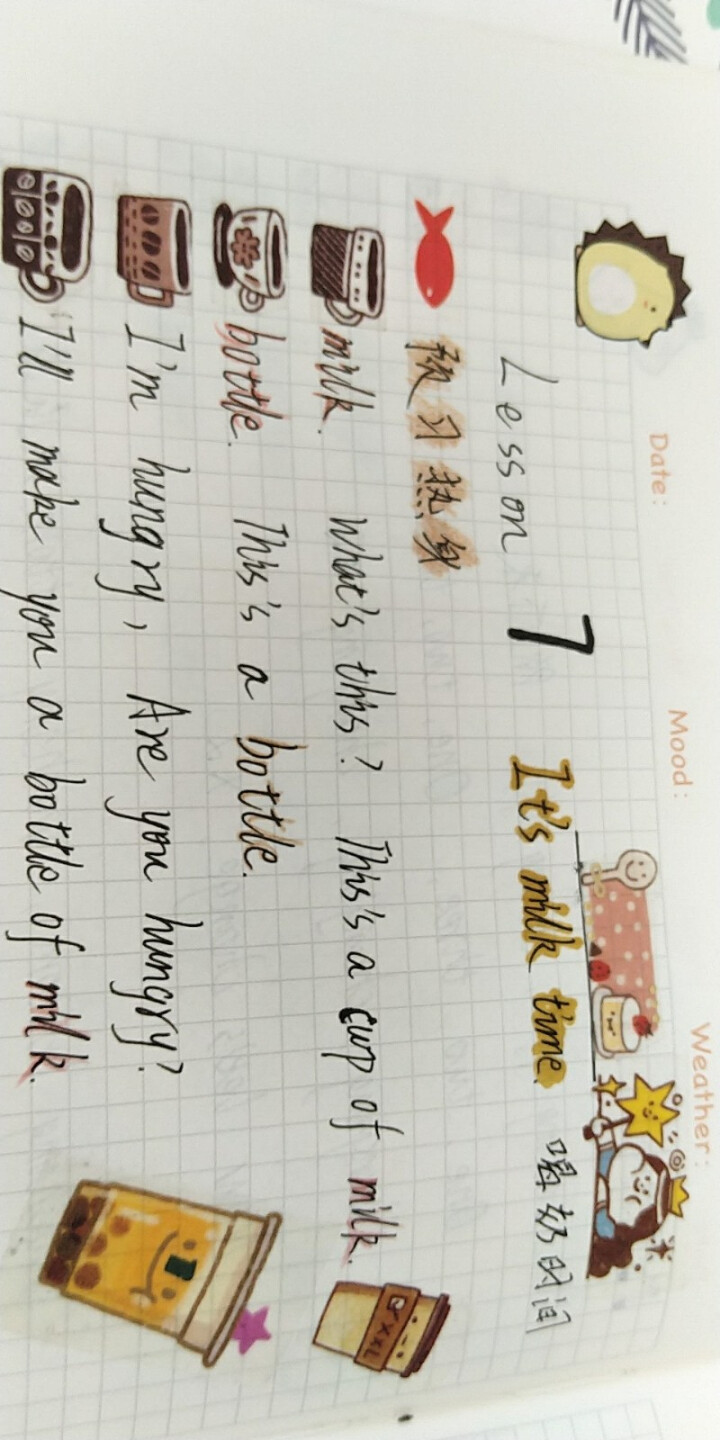 Date: Mood: Weather:
Lesson 7 It's milk time. 喝奶时间
预习热身
milk. What's this? This's a cup of milk.
XXL
bottle. This's a bottle.
I'm hungry, Are you hungry?
I'll make you a bottle of milk.